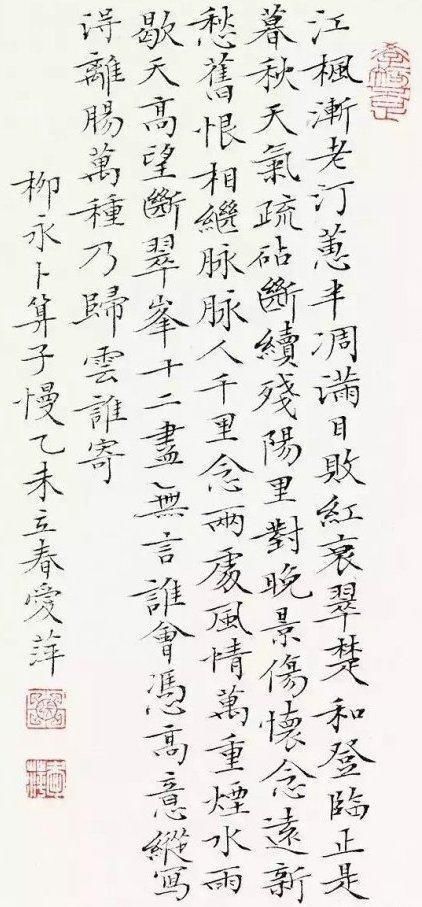 江楓漸老汀蕙半凋滿目敗紅衰翠楚和登臨正是
暮秋天氣疏砧斷續殘陽里對晚景傷懷念遠新
愁舊恨相繼脉脉人千里念兩處風情萬重煙水雨
歇天高望斷翠峯十二盡無言誰會憑高意縱寫
淂離腸萬種乃歸雲誰寄
柳永卜算子慢乙未立春愛萍